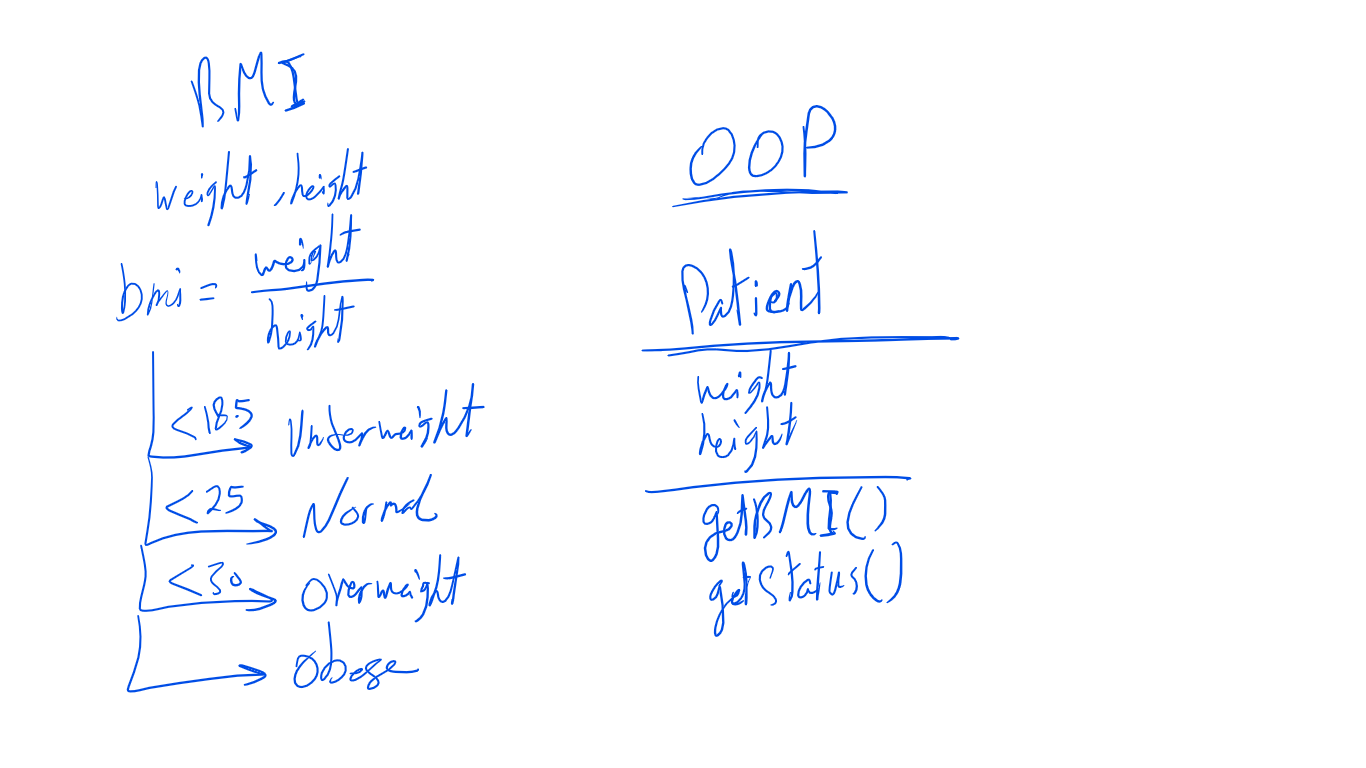 BMI
weight, height
bmi = weight
height
<18.5 Underweight
<25 Normal
<30 Overweight
Obese
OOP
Patient
weight
height
getBMI()
getStatus()